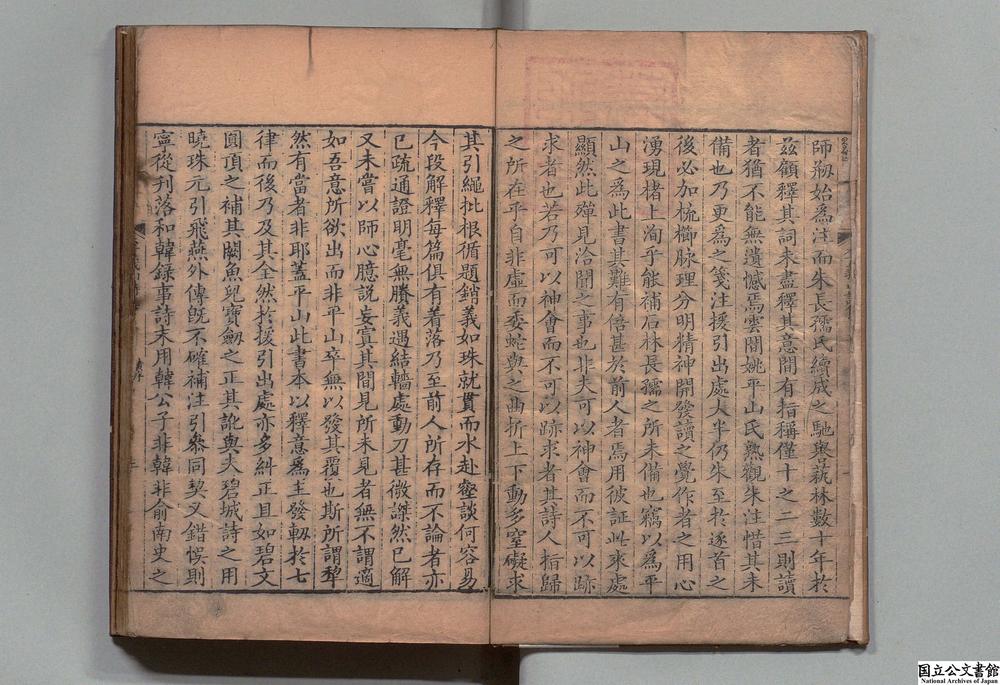 師剏始為注而朱長孺氏續成之馳與蓺林數十年於
玆顧釋其詞未盡釋其意間有指稱僅十之二三則讀
者猶不能無遺憾焉雲間姚平山氏熟觀朱注惜其未
備也乃更為之箋注援引出處大半仍朱至於逐首之
後必加梳櫛脉理分明精神開發讀之覺作者之用心
湧現楮上洵乎能補后林長孺之所未備也竊以為平
山之為此書其難有倍甚於前人者焉用彼証此求處
顯然此殫見洽聞之事也非夫可以神會而不可以跡
求者也若乃可以神會而不可以跡求者其詩人指歸
之所在乎自非虛而委蛇與之曲折上下動多窒礙求
其引繩批根循題銷義如珠就貫而水赴壑談何容易
今段解釋每篇俱有着落乃至前人所存而不論者亦
已疏通證明毫無賸義遇結轖處動刀甚微謋然已解
又未嘗以師心臆説妄寘其間見所未見者無不謂適
如吾意所欲出而非平山卒無以發其覆也斯所謂犁
然有當者非耶蓋平山此書本以釋意為主發軔於七
律而後乃及其全然於援引出處亦多糾正且如碧文
圓頂之補其闕魚兒寶劒之正其訛與夫碧城詩之用
曉珠元引飛燕外傳旣不確補注引叅同契又錯悞則
寧從刋落和韓録事詩末用韓公子非韓非俞南史之
国立公文書館
National Archives of Japan